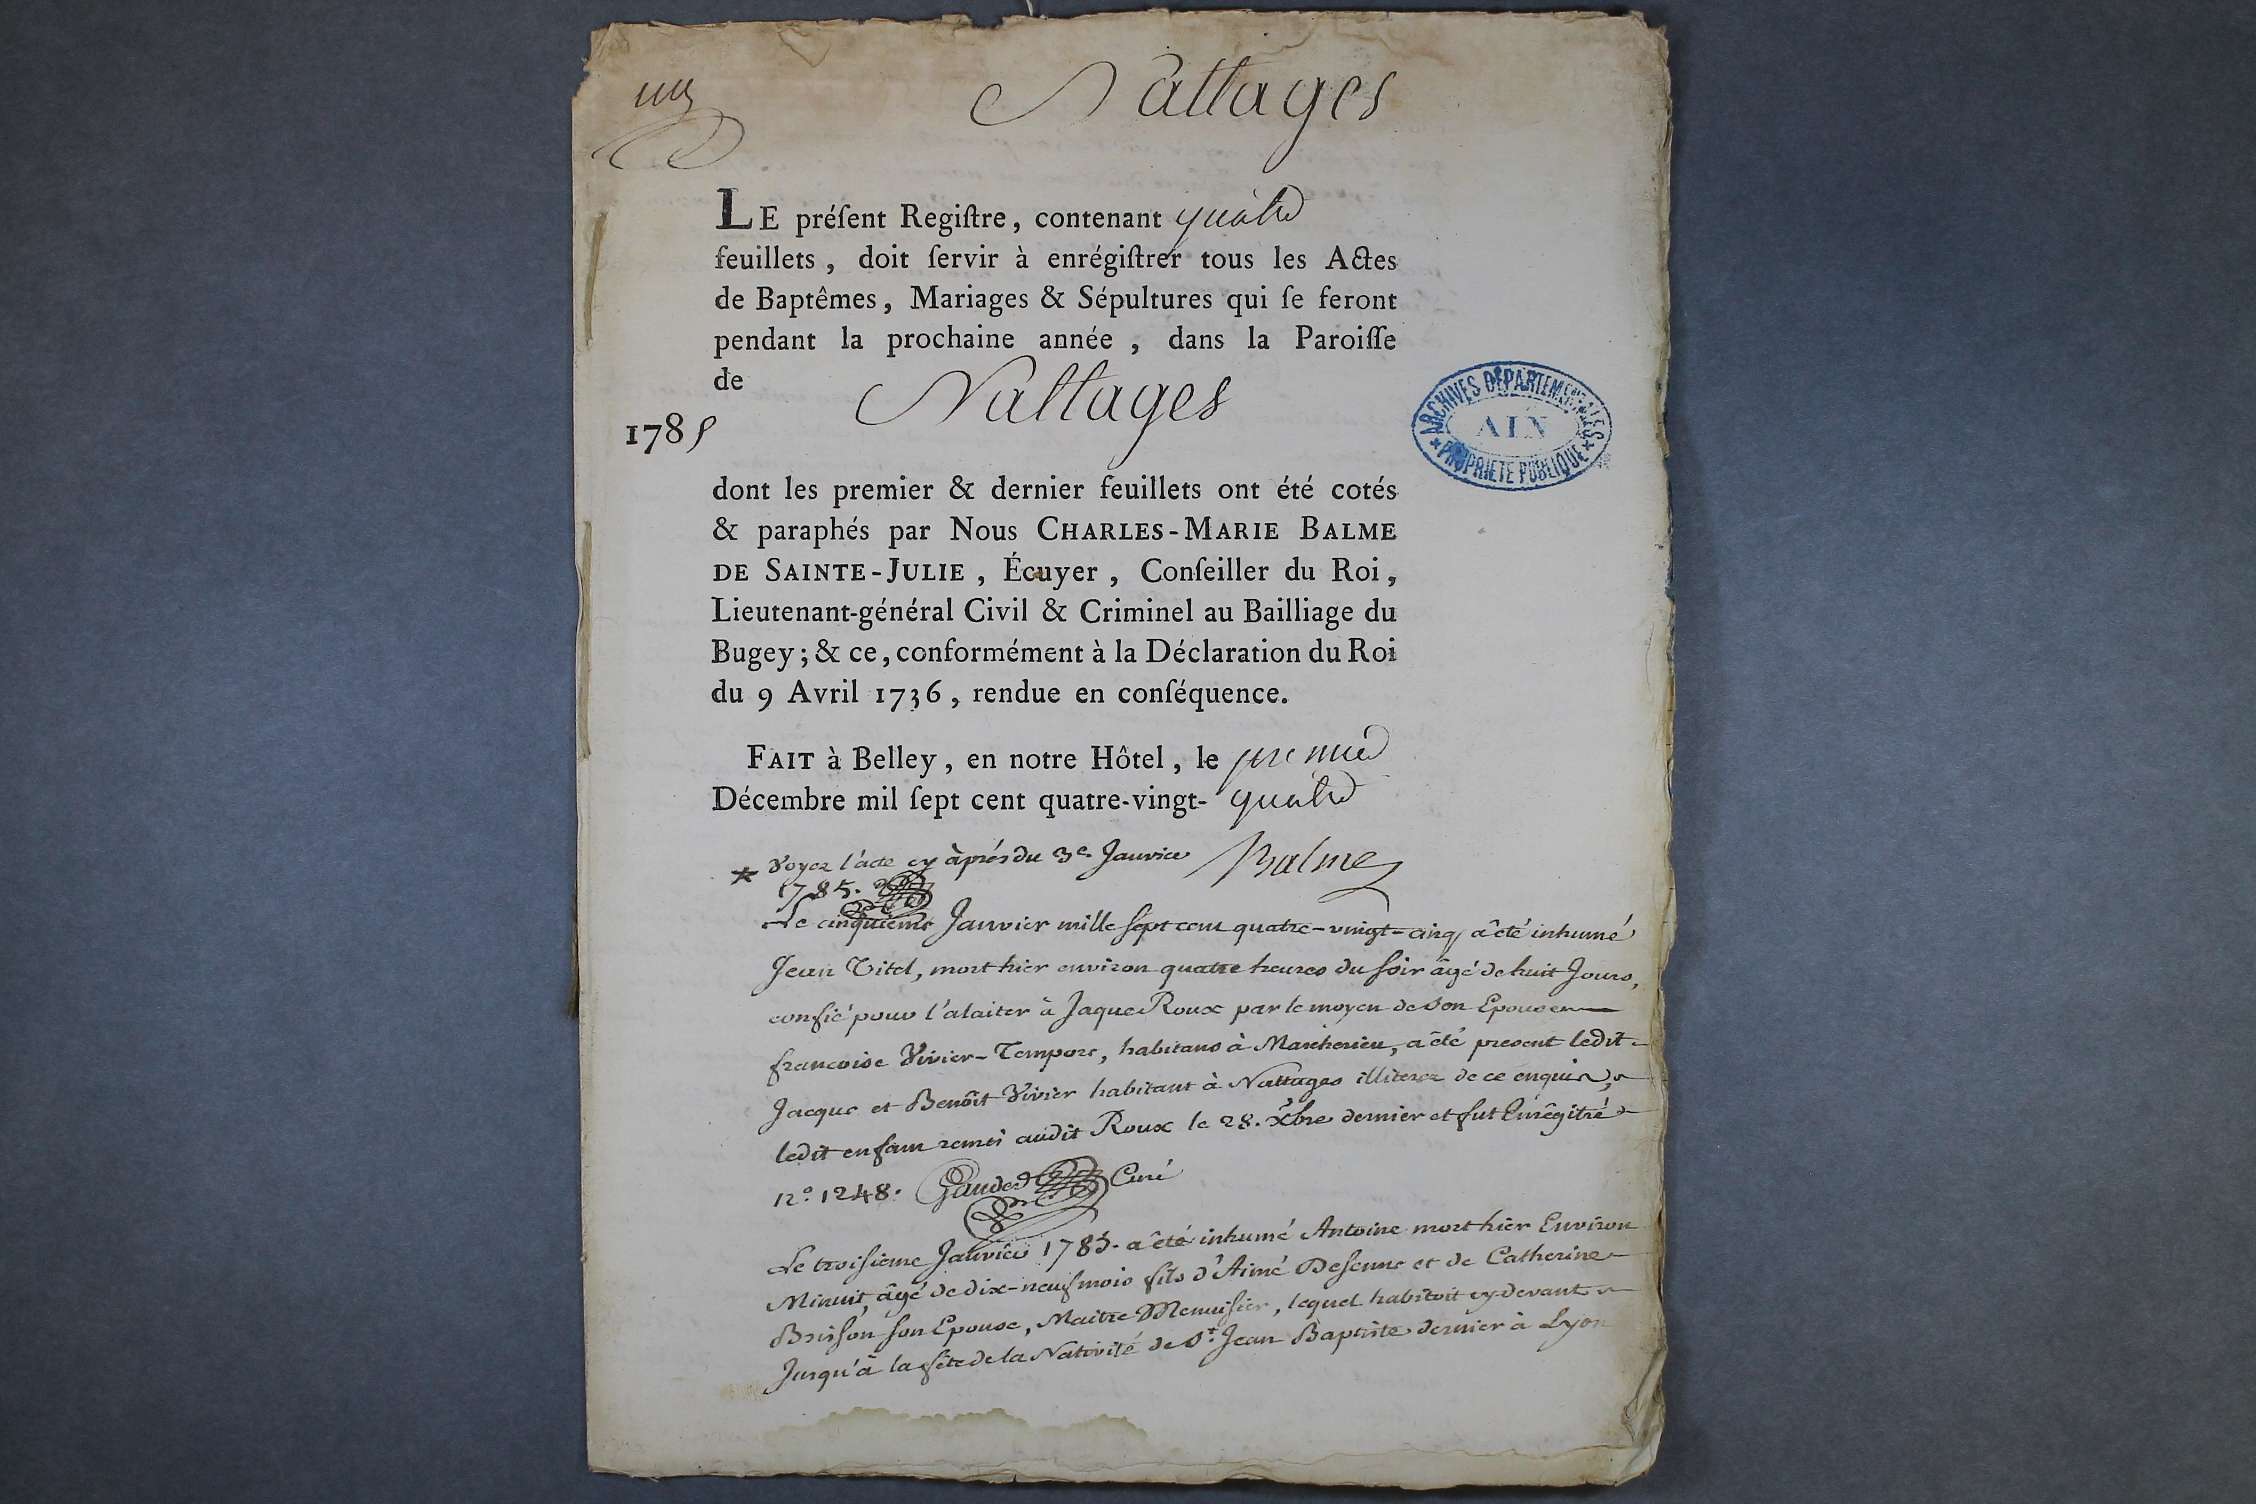 Nattages
LE préſent Regiſtre, contenant quatre
feuillets, doit ſervir à enrégiſtrer tous les Actes
de Baptêmes, Mariages & Sépultures qui ſe feront
pendant la prochaine année, dans la Paroiſſe
de Nattages
1785
ARCHIVES DÉPARTEMENTALES
AIN
PROPRIÉTÉ PUBLIQUE
dont les premier & dernier feuillets ont été cotés
& paraphés par Nous CHARLES-MARIE BALME
DE SAINTE-JULIE, Écuyer, Conſeiller du Roi,
Lieutenant-général Civil & Criminel au Bailliage du
Bugey; & ce, conformément à la Déclaration du Roi
du 9 Avril 1736, rendue en conſéquence.
FAIT à Belley, en notre Hôtel, le premier
Décembre mil ſept cent quatre-vingt-quatre
Balme
* Voyez l'acte cy àprés du 3e Janvier
1785.
Le cinquieme Janvier mille sept cent quatre-vingt-cinq a été inhumé
Jean Titel, mort hier environ quatre heures du soir âgé de huit Jours,
confié pour l'alaiter à Jaque Roux par le moyen de son Epouse
francoise Vivier-Tempore, habitans à, a été present ledit
Jacque et Benoît Vivier habitant à Nattages de ce enquis,
ledit enfant remis audit Roux le 28. Xbre dernier et fut Enrêgitré
no. 1248. Curé
Le troisieme Janvier 1785. a été inhumé Antoine mort hier Environ
Minuit, âgé de dix-neuf mois fils d'Aimé Desenne et de Catherine
Brisson son Epouse, Maitre Menuisier, lequel habitoit cy devant
Jusqu'à la fête de la Nativité de St Jean Baptiste dernier à Lyon